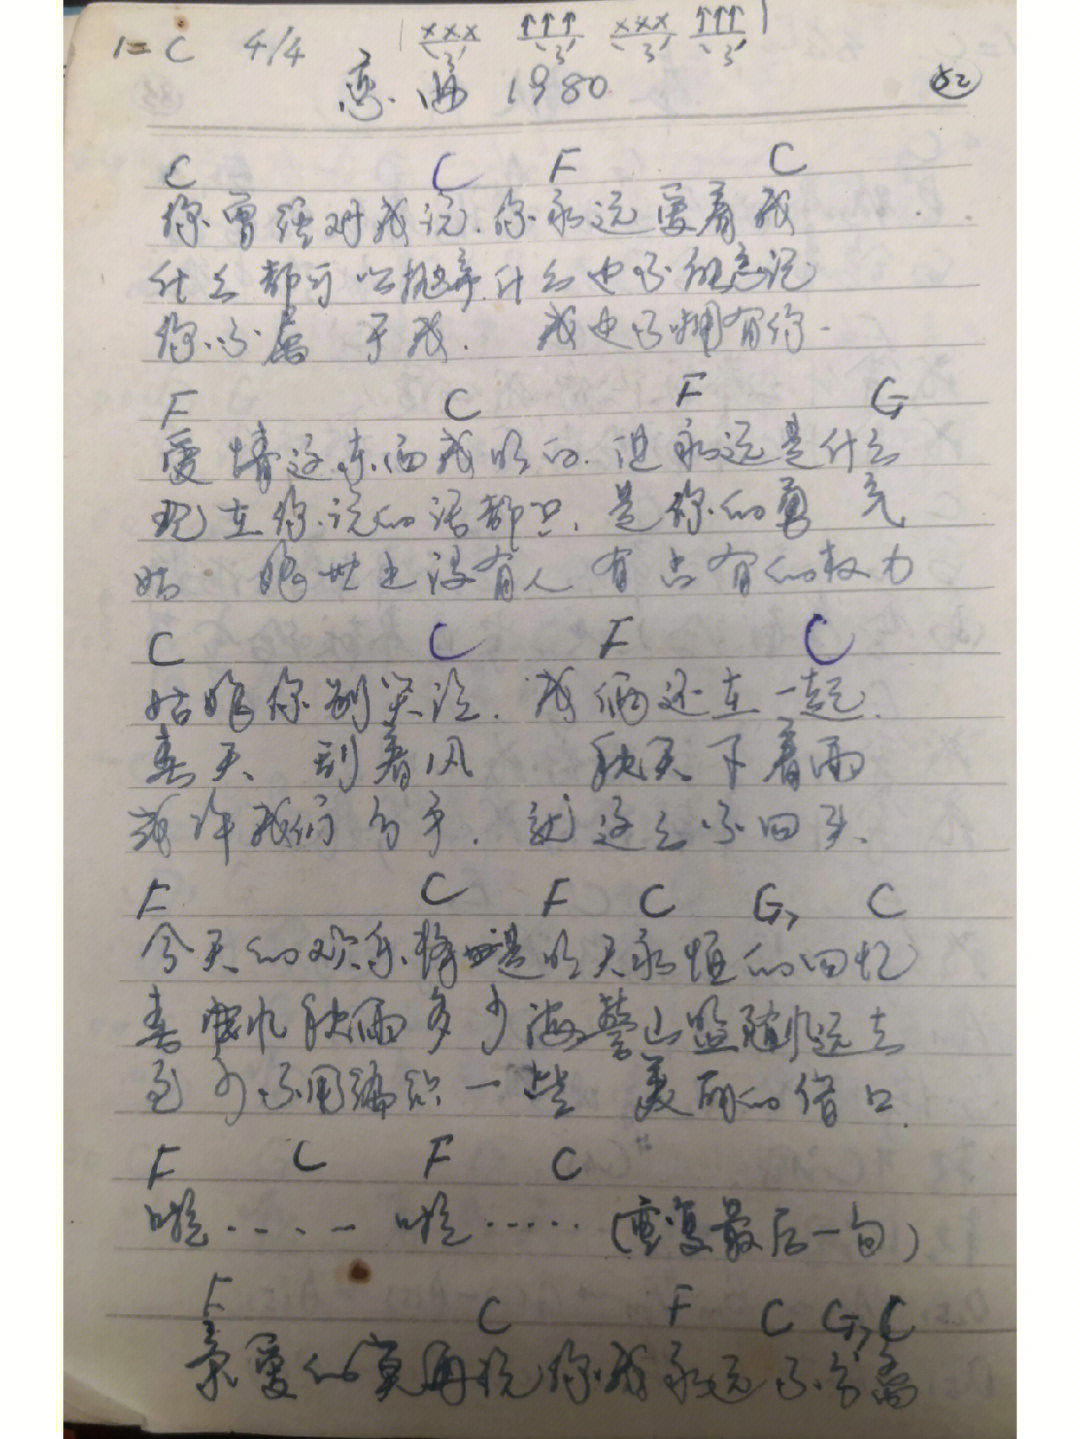 1=C 4/4 | xxx 3 ↑↑↑ 3 xxx 3 ↑↑↑ 3 |
恋曲 1980 82
C C F C
你曾经对我说.你永远爱着我
什么都可以抛弃.什么也不能忘记
你不属于我. 我也不拥有你.
F C F G
爱情这东西我明白.但永远是什么
现在你说的话都只.是你的勇气
姑娘世上没有人 有占有的权力
C C F C
姑娘你别哭泣.我俩还在一起.
春天刮着风 秋天下着雨
或许我们分手.就这么不回头.
F C F C G7 C
今天的欢乐将是明天永恒的回忆
春风秋雨多少海誓山盟随风远去
至少不用编织一些 美丽的借口.
F C F C
啦····· 啦·····(重复最后一句)
F C F C G7 C
亲爱的莫再说你我永远不分离